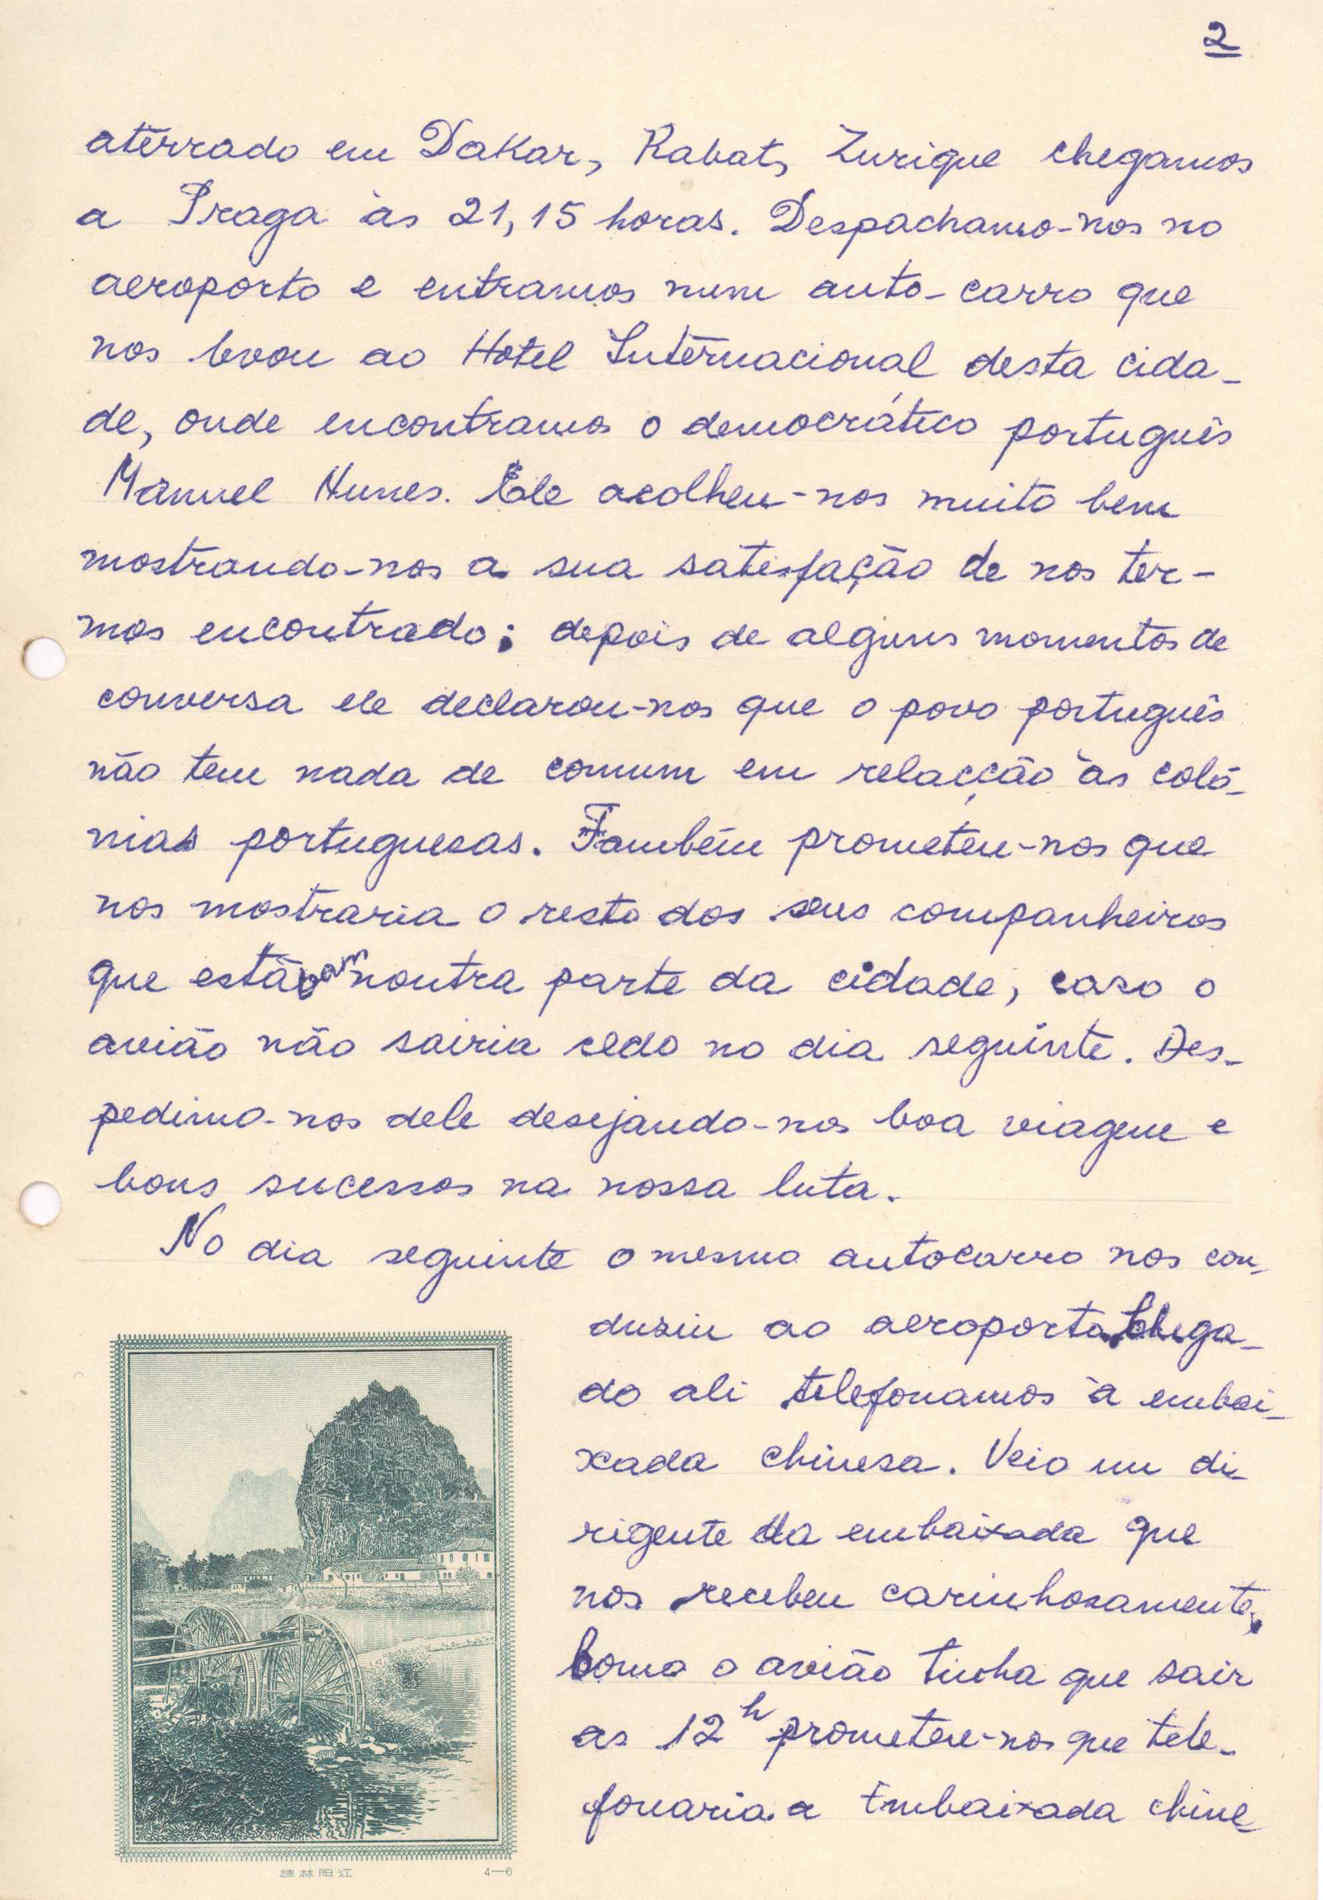 2
aterrado em Dakar, Rabat, Zurique chegamos
a Praga às 21,15 horas. Despachamo-nos no
aeroporto e entramos num auto-carro que
nos levou ao Hotel Internacional desta cida-
de, onde encontramos o democrático português
Manuel Nunes. Ele acolheu-nos muito bem
mostrando-nos a sua satisfação de nos ter-
mos encontrado; depois de alguns momentos de
conversa ele declarou-nos que o povo português
não tem nada de comum em relacção às coló-
nias portuguesas. Também prometeu-nos que
nos mostraria o resto dos seus companheiros
que estavam noutra parte da cidade, caso o
avião não sairia cedo no dia seguinte. Des-
pedimo-nos dele desejando-nos boa viagem e
bons sucessos na nossa luta.
No dia seguinte o mesmo autocarro nos con-
duziu ao aeroporto. Chega-
do ali telefonamos à embai-
xada chinesa. Veio um di-
rigente da embaixada que
nos recebeu carinhosamente,
Como o avião tinha que sair
as 12h prometeu-nos que tele-
fonaria a Embaixada chine
桂林阳江 4—6